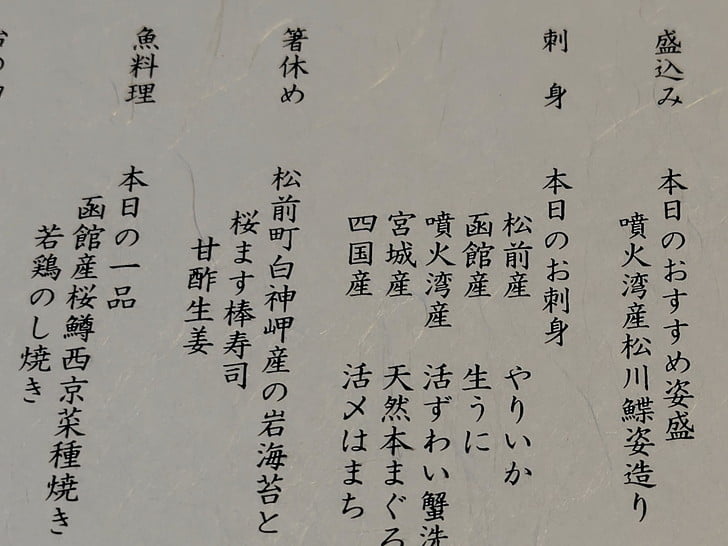 盛込み
本日のおすすめ姿盛
噴火湾産松川鰈姿造り
刺身
本日のお刺身
松前産 やりいか
函館産 生うに
噴火湾産 活ずわい蟹洗
宮城産 天然本まぐろ
四国産 活〆はまち
箸休め
松前町白神岬産の岩海苔と
桜ます棒寿司
甘酢生姜
魚料理
本日の一品
函館産桜鱒西京菜種焼き
若鶏のし焼き